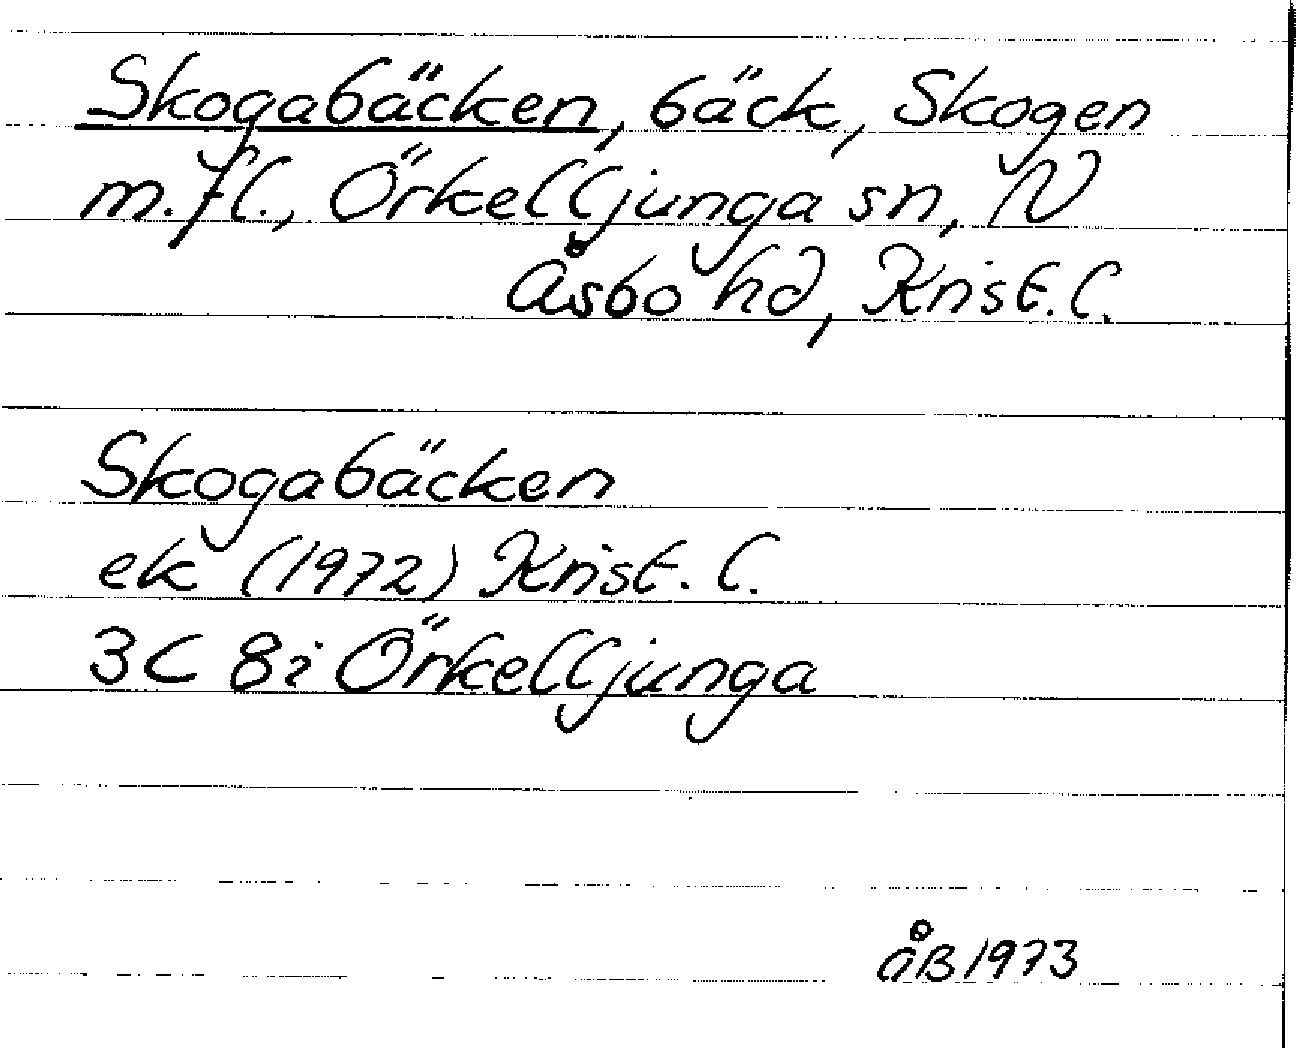 Skogabäcken, bäck, Skogen
m.fl., Örkelljunga sn, N
Åsbo hd, Krist.l.
Skogabäcken
ek (1972) Krist.l.
3C 8i Örkelljunga
åB 1973